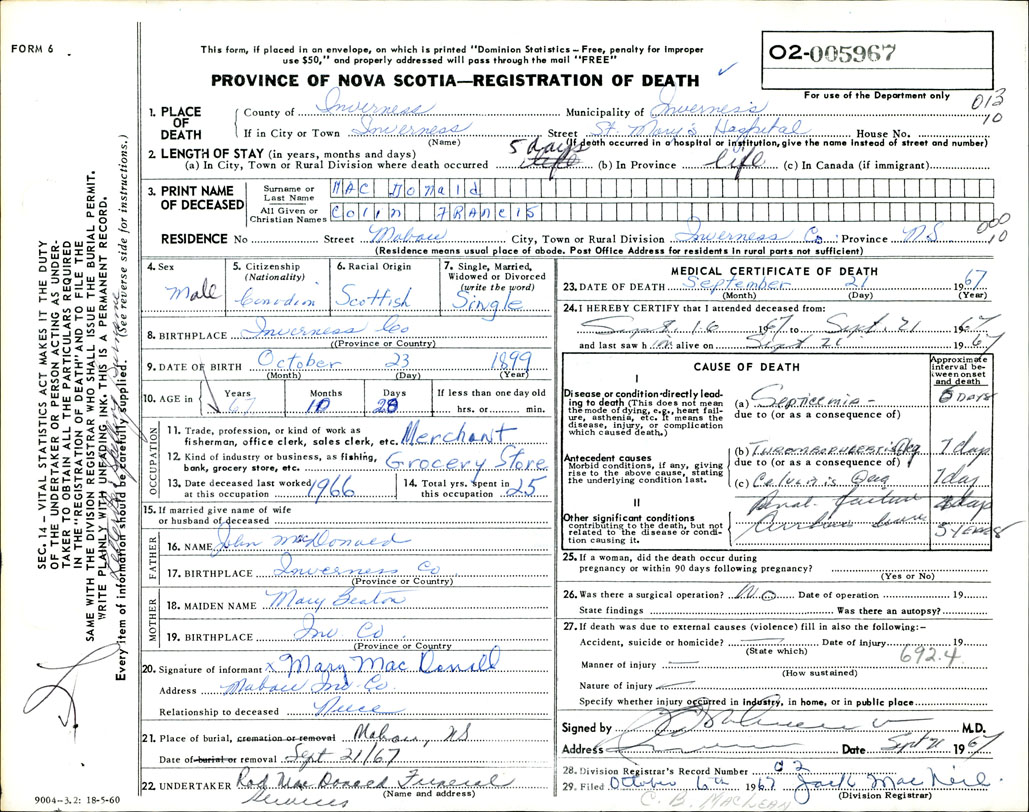 FORM 6
This form, if placed in an envelope, on which is printed "Dominion Statistics – Free, penalty for improper
use $50," and properly addressed will pass through the mail "FREE"
PROVINCE OF NOVA SCOTIA—REGISTRATION OF DEATH
02-005967
For use of the Department only
013
10
1. PLACE OF DEATH
County of Inverness Municipality of Inverness
If in City or Town Inverness Street St. Mary's Hospital House No.
(Name) (If death occurred in a hospital or institution, give the name instead of street and number)
2. LENGTH OF STAY (in years, months and days)
(a) In City, Town or Rural Division where death occurred 5 days life (b) In Province life (c) In Canada (if immigrant)
3. PRINT NAME OF DECEASED
Surname or Last Name MAC Donald
All Given or Christian Names Colin FRANCIS
000
10
RESIDENCE No Street Mabou City, Town or Rural Division Inverness Co. Province NS
(Residence means usual place of abode. Post Office Address for residents in rural parts not sufficient)
4. Sex Male
5. Citizenship (Nationality) Canadian
6. Racial Origin Scottish
7. Single, Married, Widowed or Divorced (write the word) Single
8. BIRTHPLACE Inverness Co
(Province or Country)
9. DATE OF BIRTH October 23 1899
(Month) (Day) (Year)
10. AGE in Years 67 Months 10 Days 28 If less than one day old hrs. or min.
OCCUPATION
11. Trade, profession, or kind of work as fisherman, office clerk, sales clerk, etc. Merchant
12. Kind of industry or business, as fishing, bank, grocery store, etc. Grocery Store
13. Date deceased last worked at this occupation 1966
14. Total yrs. spent in this occupation 25
15. If married give name of wife or husband of deceased
FATHER
16. NAME John MacDonald
17. BIRTHPLACE Inverness Co
(Province or Country)
MOTHER
18. MAIDEN NAME Mary Beaton
19. BIRTHPLACE Inv Co.
(Province or Country
20. Signature of informant x Mary Mac Donald
Address Mabou Inv. Co.
Relationship to deceased Niece
21. Place of burial, cremation or removal Mabou, NS
Date of burial or removal Sept 21/67
22. UNDERTAKER Rod Mac Donald Funeral Services
(Name and address)
9004-3.2: 18-5-60
MEDICAL CERTIFICATE OF DEATH
23. DATE OF DEATH September 21 1967
(Month) (Day) (Year)
24. I HEREBY CERTIFY that I attended deceased from:
Sept. 16 1967 to Sept. 21 1967
and last saw him alive on Sept 21 1967
CAUSE OF DEATH
Approximate interval between onset and death
I
Disease or condition directly leading to death (This does not mean the mode of dying, e.g., heart failure, asthenia, etc. It means the disease, injury, or complication which caused death.)
(a) Septicemia 5 DAYS
due to (or as a consequence of)
Antecedent causes
Morbid conditions, if any, giving rise to the above cause, stating the underlying condition last.
(b) Thrombophlebitis leg 7 days
due to (or as a consequence of)
(c) Cellulitis leg 7 day
II
Other significant conditions contributing to the death, but not related to the disease or condition causing it.
Renal failure
5 YEARS
25. If a woman, did the death occur during
pregnancy or within 90 days following pregnancy?
(Yes or No)
26. Was there a surgical operation? No Date of operation 19
State findings Was there an autopsy?
27. If death was due to external causes (violence) fill in also the following:–
Accident, suicide or homicide? Date of injury 19
(State which)
692.4
Manner of injury
(How sustained)
Nature of injury
Specify whether injury occurred in industry, in home, or in public place
Signed by M.D.
Address Date Sept 21 1967
28. Division Registrar's Record Number 02
29. Filed October 6th 1967 Jack MacNeil
(Division Registrar)
C. B. MacLean
SEC. 14 – VITAL STATISTICS ACT MAKES IT THE DUTY
OF THE UNDERTAKER OR PERSON ACTING AS UNDER-
TAKER TO OBTAIN ALL THE PARTICULARS REQUIRED
IN THE "REGISTRATION OF DEATH" AND TO FILE THE
SAME WITH THE DIVISION REGISTRAR WHO SHALL ISSUE THE BURIAL PERMIT.
WRITE PLAINLY WITH UNFADING INK. THIS IS A PERMANENT RECORD.
Every item of information should be carefully supplied. (See reverse side for instructions.)